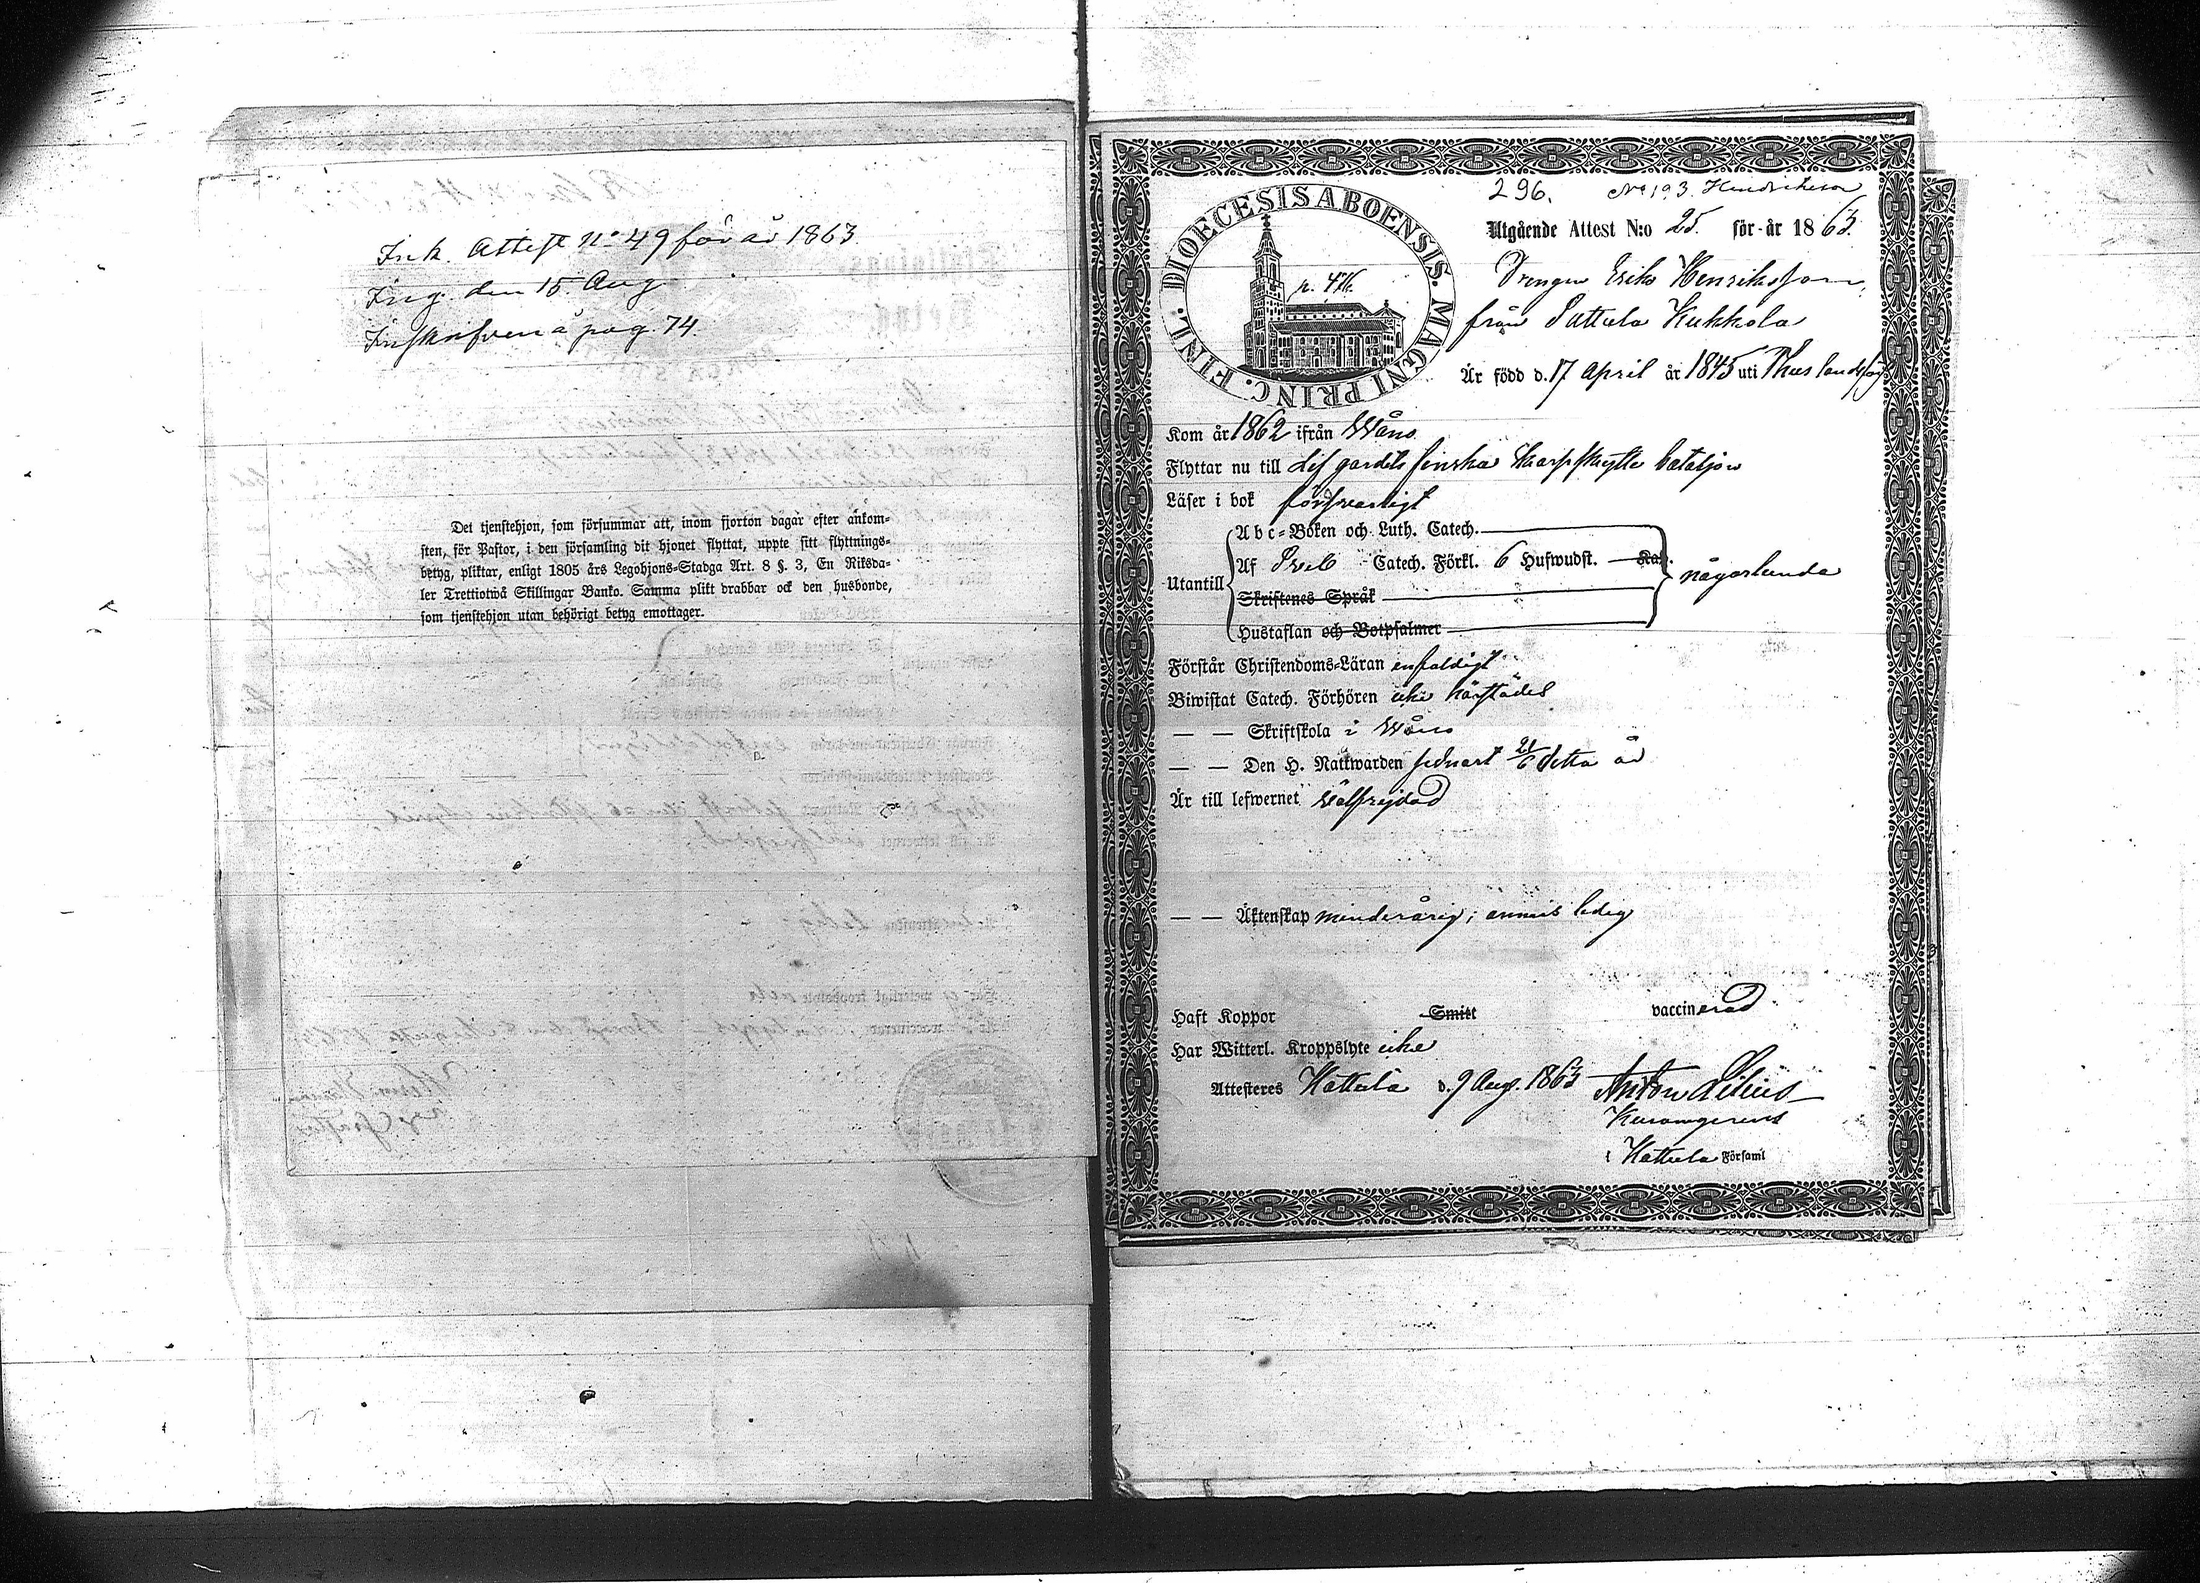 Ink. Attest No 49 för år 1863
Ing. den 15 Aug
Inskrifven å pag. 74.
Det tjenstehjon, som försummar att, inom fjorton dagar efter ankom-
sten, för Pastor, i den församling dit hjonet flyttat, uppte sitt flyttnings-
betyg, pliktar, enligt 1805 års Legohjons-Stadga Art. 8 §. 3, En Riksda-
ler Trettiotwå Skillingar Banko. Samma plikt drabbar ock den husbonde,
som tjenstehjon utan behörigt betyg emottager.
296. No 193 Hendriksson
DIOECESIS ABOENSIS. MAGNI PRINC. FINL:
p. 476.
Utgående Attest N:o 25. för år 1863.
Drengen Eriks Henriksson,
från Pattula Kukkola
Är född d. 17 April år 1845 uti Thuslandsförs
Kom år 1862 ifrån Wånå
Flyttar nu till Lif gardets finska Skarpskytte bataljon
Läser i bok försvarligt
Abc-Boken och Luth. Catech.
Utantill Af Sveb Catech. Förkl. 6 Hufwudst. Kap. någorlunda
Skriftenes Språk
Hustaflan och Botpsalmer
Förstår Christendoms-Läran enfaldigt
Biwistat Catech. Förhören icke härstädes
— — Skriftskola i Wånå
— — Den H. Nattwarden sednast 21/6 detta år
Är till lefwernet välfrejdad
— — Äktenskap minderårig; annars ledig
Haft Koppor Smitt vaccinerad
Har Witterl. Kroppslyte icke
Attesteres Hattula d. 9 Aug. 1863 Anton Lilius
i Hattula Församl